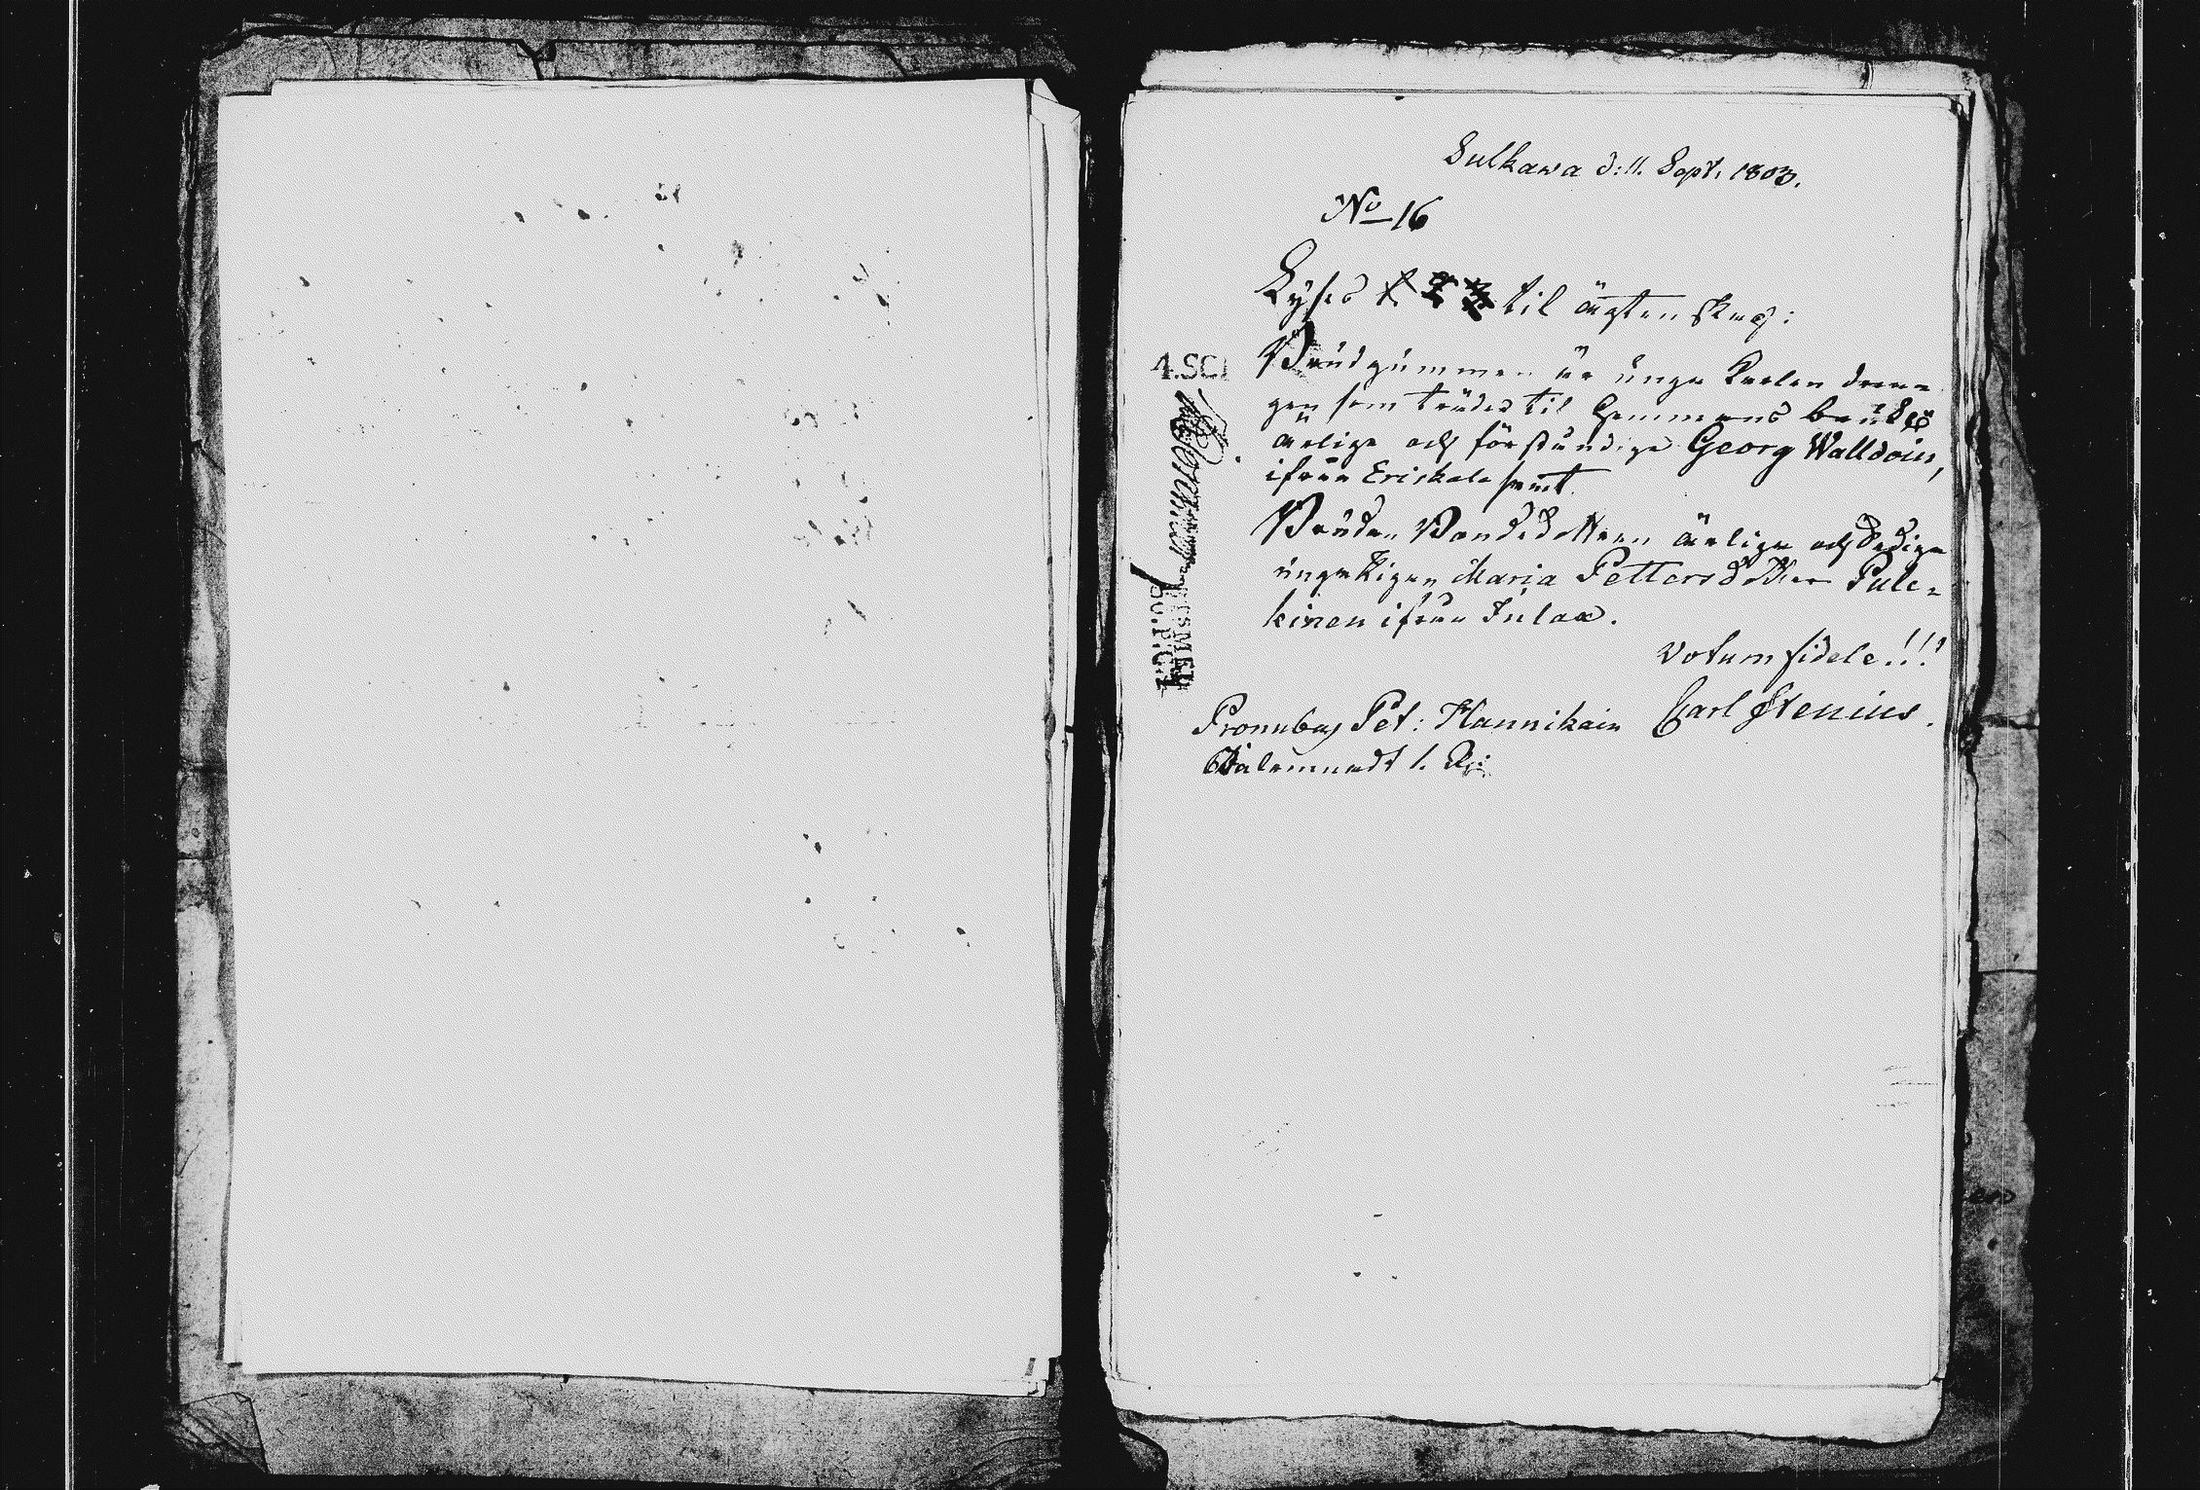 Sulkawa d: 11. Sept. 1803.
No 16
Lyses til ägtenskap:
Brudgummen är unga Karlen dren=
gen som träder til Hemmans bruk
ärlige och förståndige Georg Walldoin,
ifrån Eriskala samt
Bruden Bondedottren ärliga och Sediga
unga Pigan Maria Pettersdotter Pule=
kinen ifrån Tulax.
Votum fidele!!!
Carl Stenius.
Pronubus Pet: Hannikain
Wålmundt 1.
4.SCI